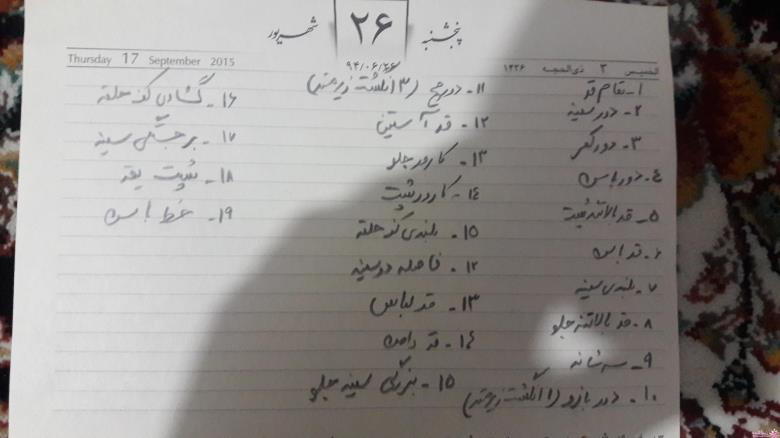 پنجشنبه
۲۶
شهریور
Thursday 17 September 2015
۹۴/۰۶/۲۶
الخمیس ۳ ذی‌الحجه ۱۴۳۶
۱- تمام قد
۲- دور سینه
۳- دور کمر
۴- دور باسن
۵- قد بالاتنه پشت
۶- قد باسن
۷- بلندی سینه
۸- قد بالاتنه جلو
۹- سرشانه
۱۰- دور بازو (۱ انگشت زیر متر)
۱۱- دور مچ (۳ انگشت زیر متر)
۱۲- قد آستین
۱۳- کارور جلو
۱۴- کارور پشت
۱۵- بلندی کف حلقه
۱۲- فاصله دو سینه
۱۳- قد لباس
۱۴- قد دامن
۱۵- بزرگی سینه جلو
۱۶- گشادی کف حلقه
۱۷- برجستگی سینه
۱۸- پشت یقه
۱۹- خط باسن